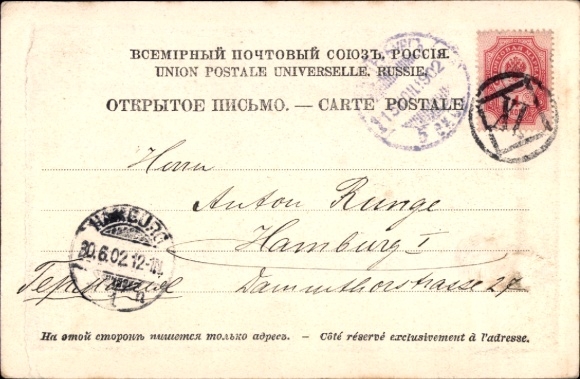 ВСЕМІРНЫЙ ПОЧТОВЫЙ СОЮЗЪ. РОССІЯ.
UNION POSTALE UNIVERSELLE. RUSSIE.
ОТКРЫТОЕ ПИСЬМО. — CARTE POSTALE
Herrn
Anton Runge
Hamburg I
Германия Dammthorstrasse 27
HAMBURG
30.6.02.12-1N
1
На этой сторонѣ пишется только адресъ. — Côté réservé exclusivement à l'adresse.